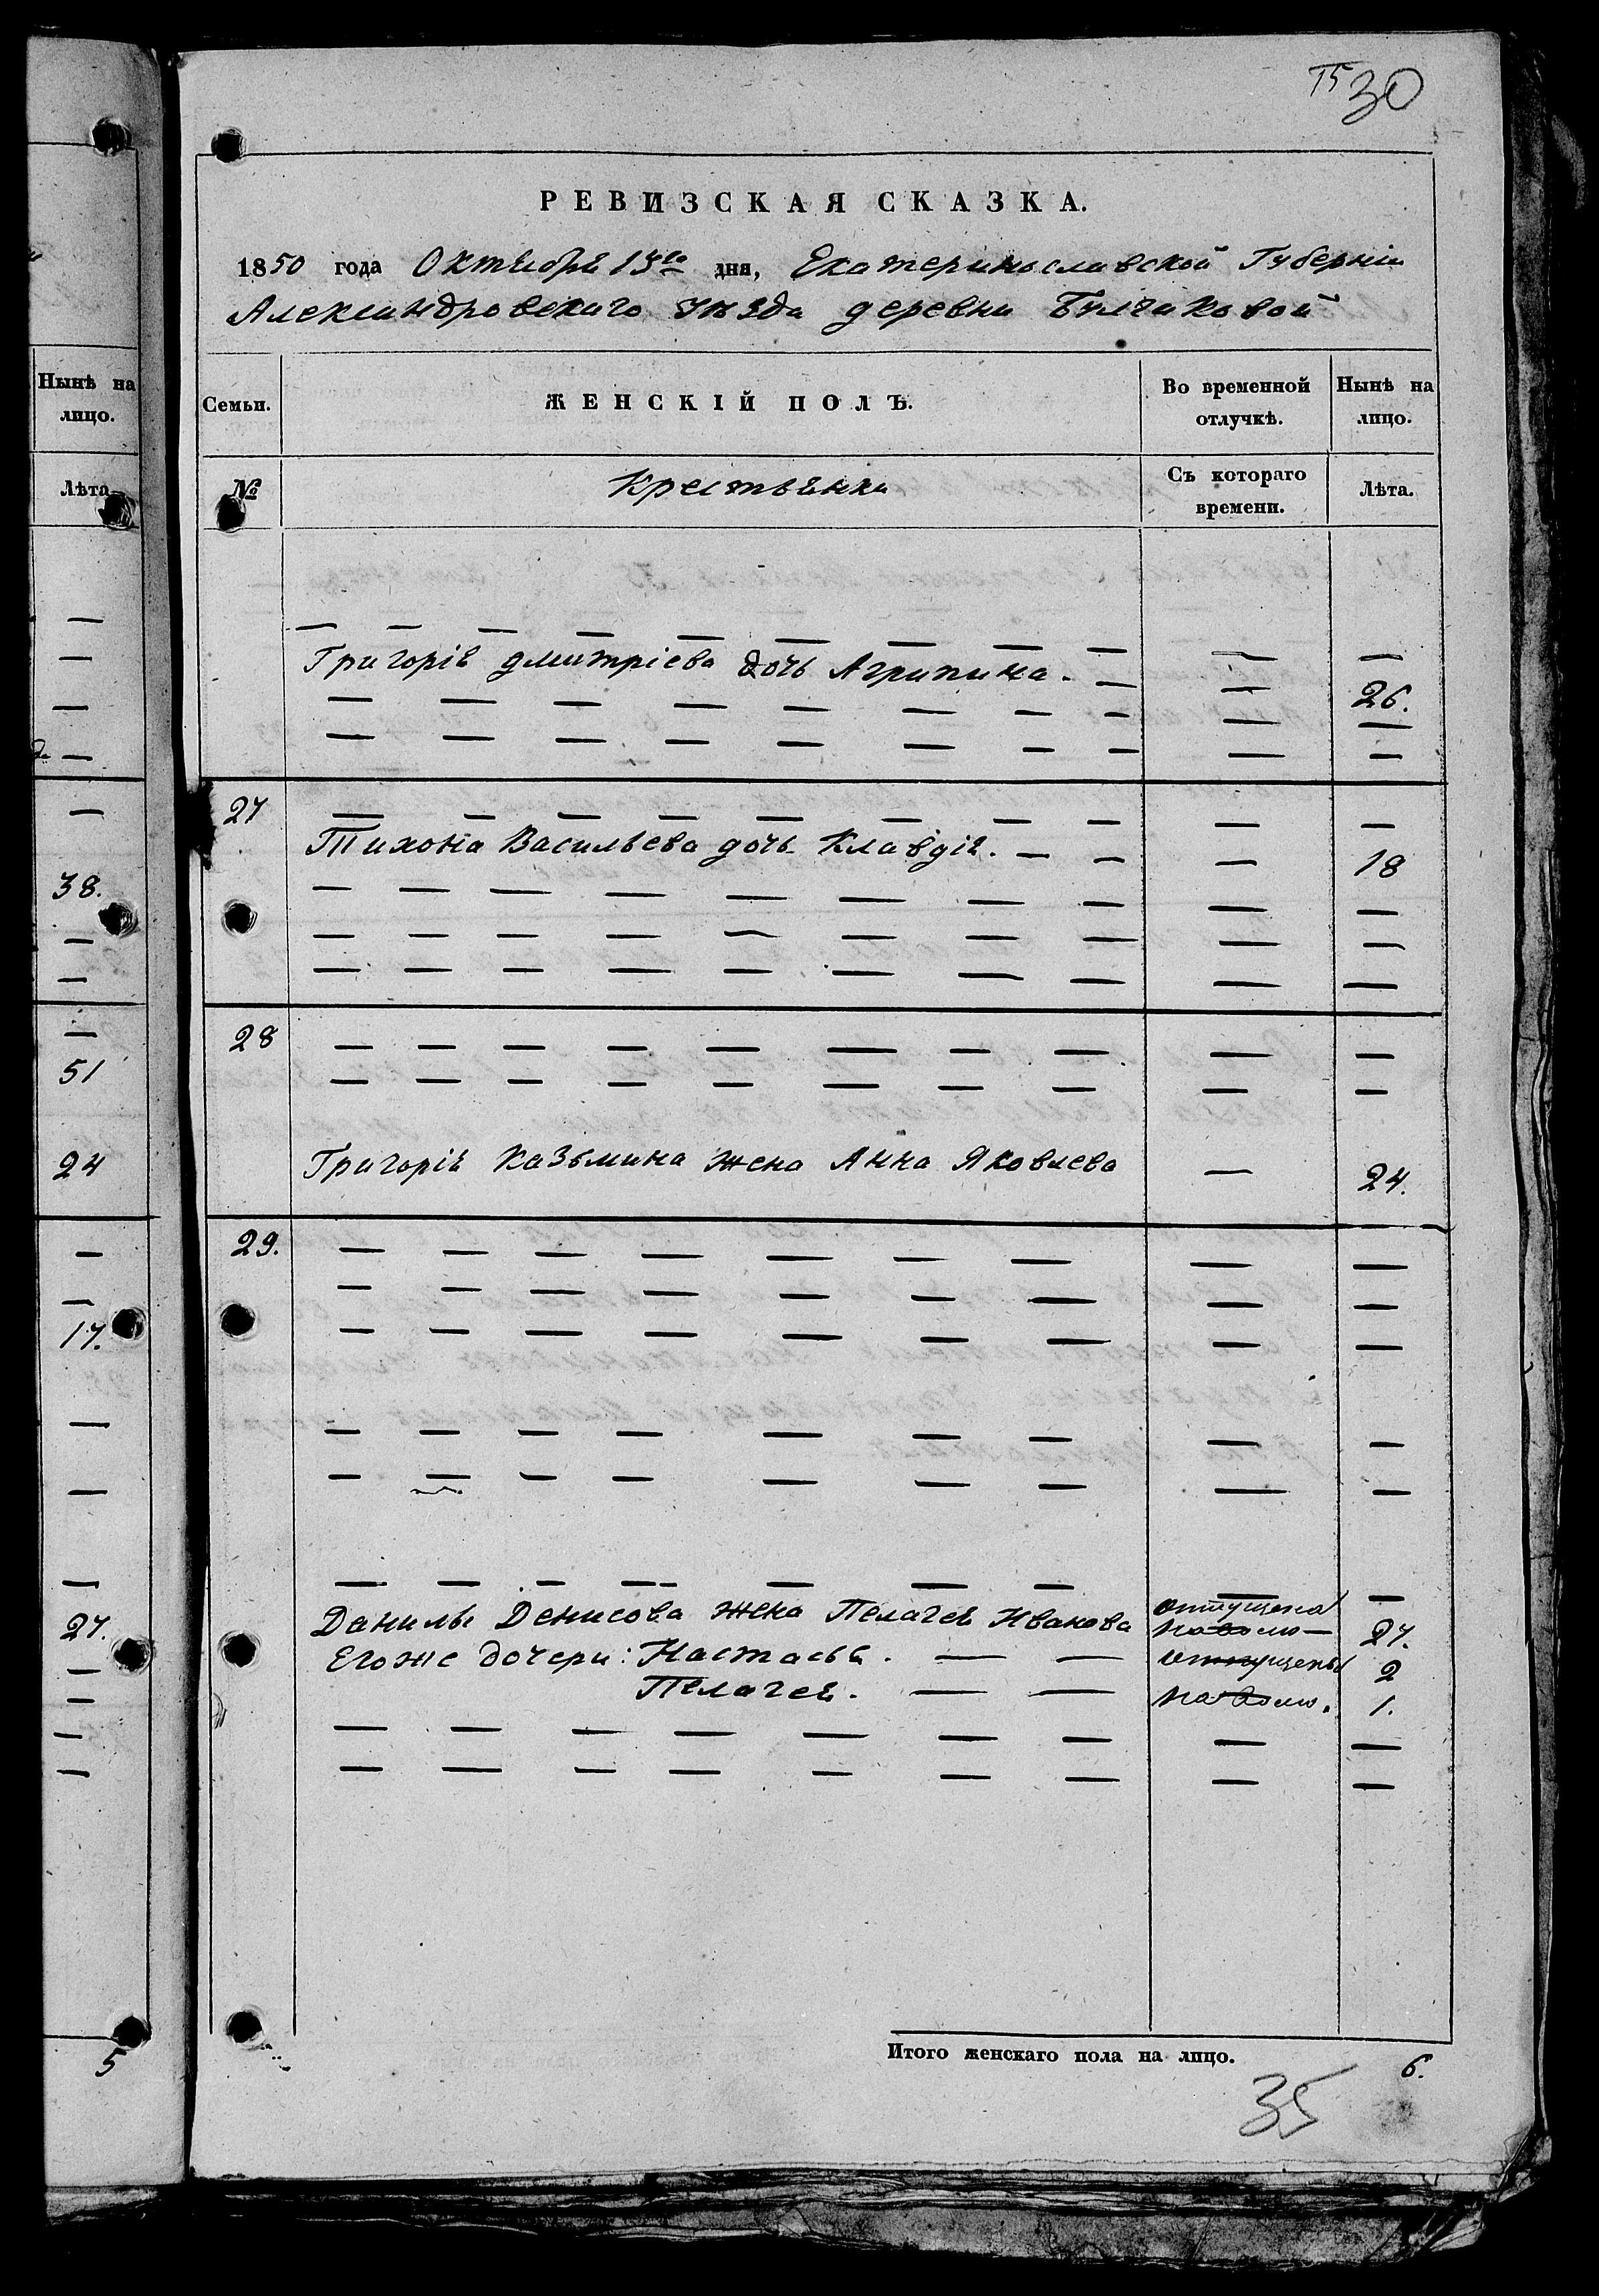 30
РЕВИЗСКАЯ СКАЗКА.
1850 года Октября 15го дня, Екатеринославской Губерніи
Александровскаго уѣзда деревни
Нынѣ на лицо.
Лѣта
38.
51
24
17.
27.
5
Семьи. ЖЕНСКІЙ ПОЛЪ. Во временной отлучкѣ. Нынѣ на лицо.
№ Крестьянки Съ котораго времени. Лѣта.
— — — — — — — — — — —
Григорія Дмитріева дочь Агрипина. — — 26.
— — — — — — — — — —
— — — — — — — — — —
27 — — — — — — — — — —
Тихона Васильева дочь Клавдія. — — — 18
— — — — — — — — — —
— — — — — — — — — —
— — — — — — — — — —
28 — — — — — — — — — —
— — — — — — — — — —
Григорія Казьмина жена Анна Яковлева — 24.
29. — — — — — — — — —
— — — — — — — — —
— — — — — — — — —
— — — — — — — — —
— — — — — — — — —
— — — — — — — — —
Данилы Денисова жена Пелагея Иванова отпущена на волю — 27.
Егоже дочери: Настасья. — — отпущены 2
Пелагея. — — на волю. 1.
— — — — — — — — —
— — — — — — — — —
Итого женскаго пола на лицо. 6.
35